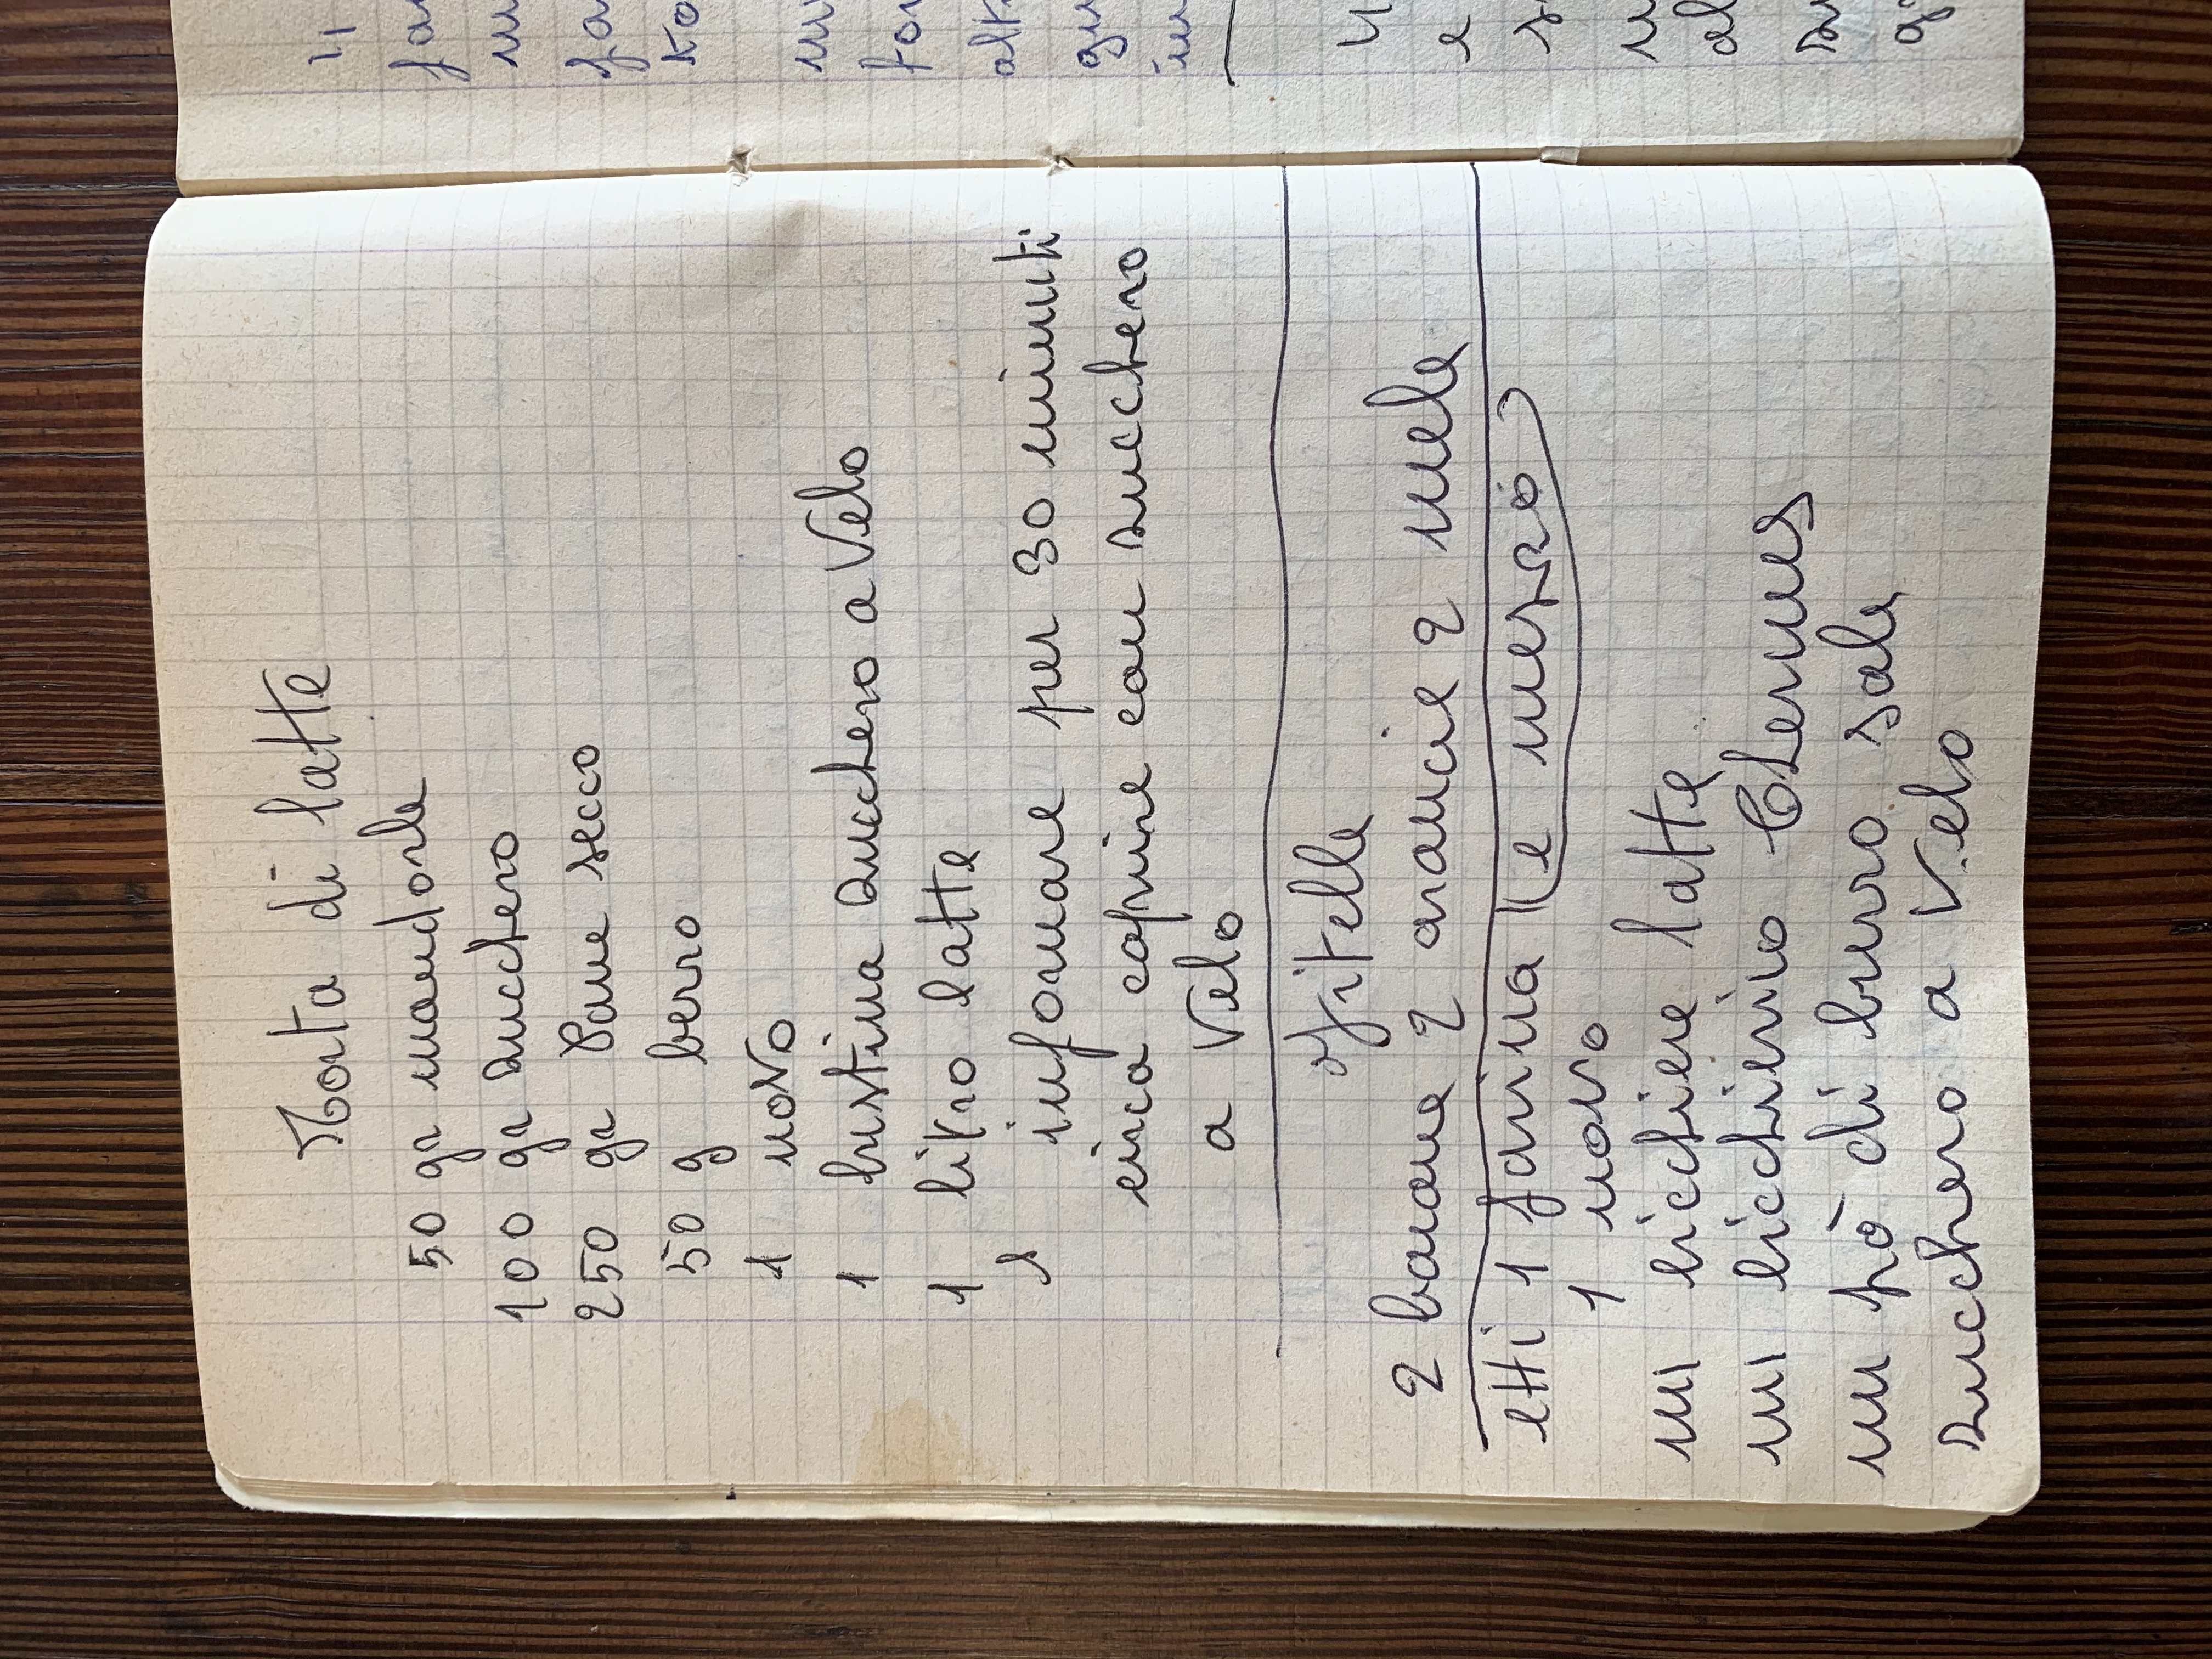 Torta di latte
50 gr mandorle
100 gr zucchero
250 gr Pane secco
50 g berro
1 uovo
1 bustina zucchero a Velo
1 litro latte
infornare per 30 minuti
circa coprire con zucchero
a Velo
Fritelle
2 banane 2 arancie 2 mele
etti 1 farina (e mezzo)
1 uovo
un bicchiere latte
un bicchierino Chermes
un pò di burro sale
zucchero a Velo